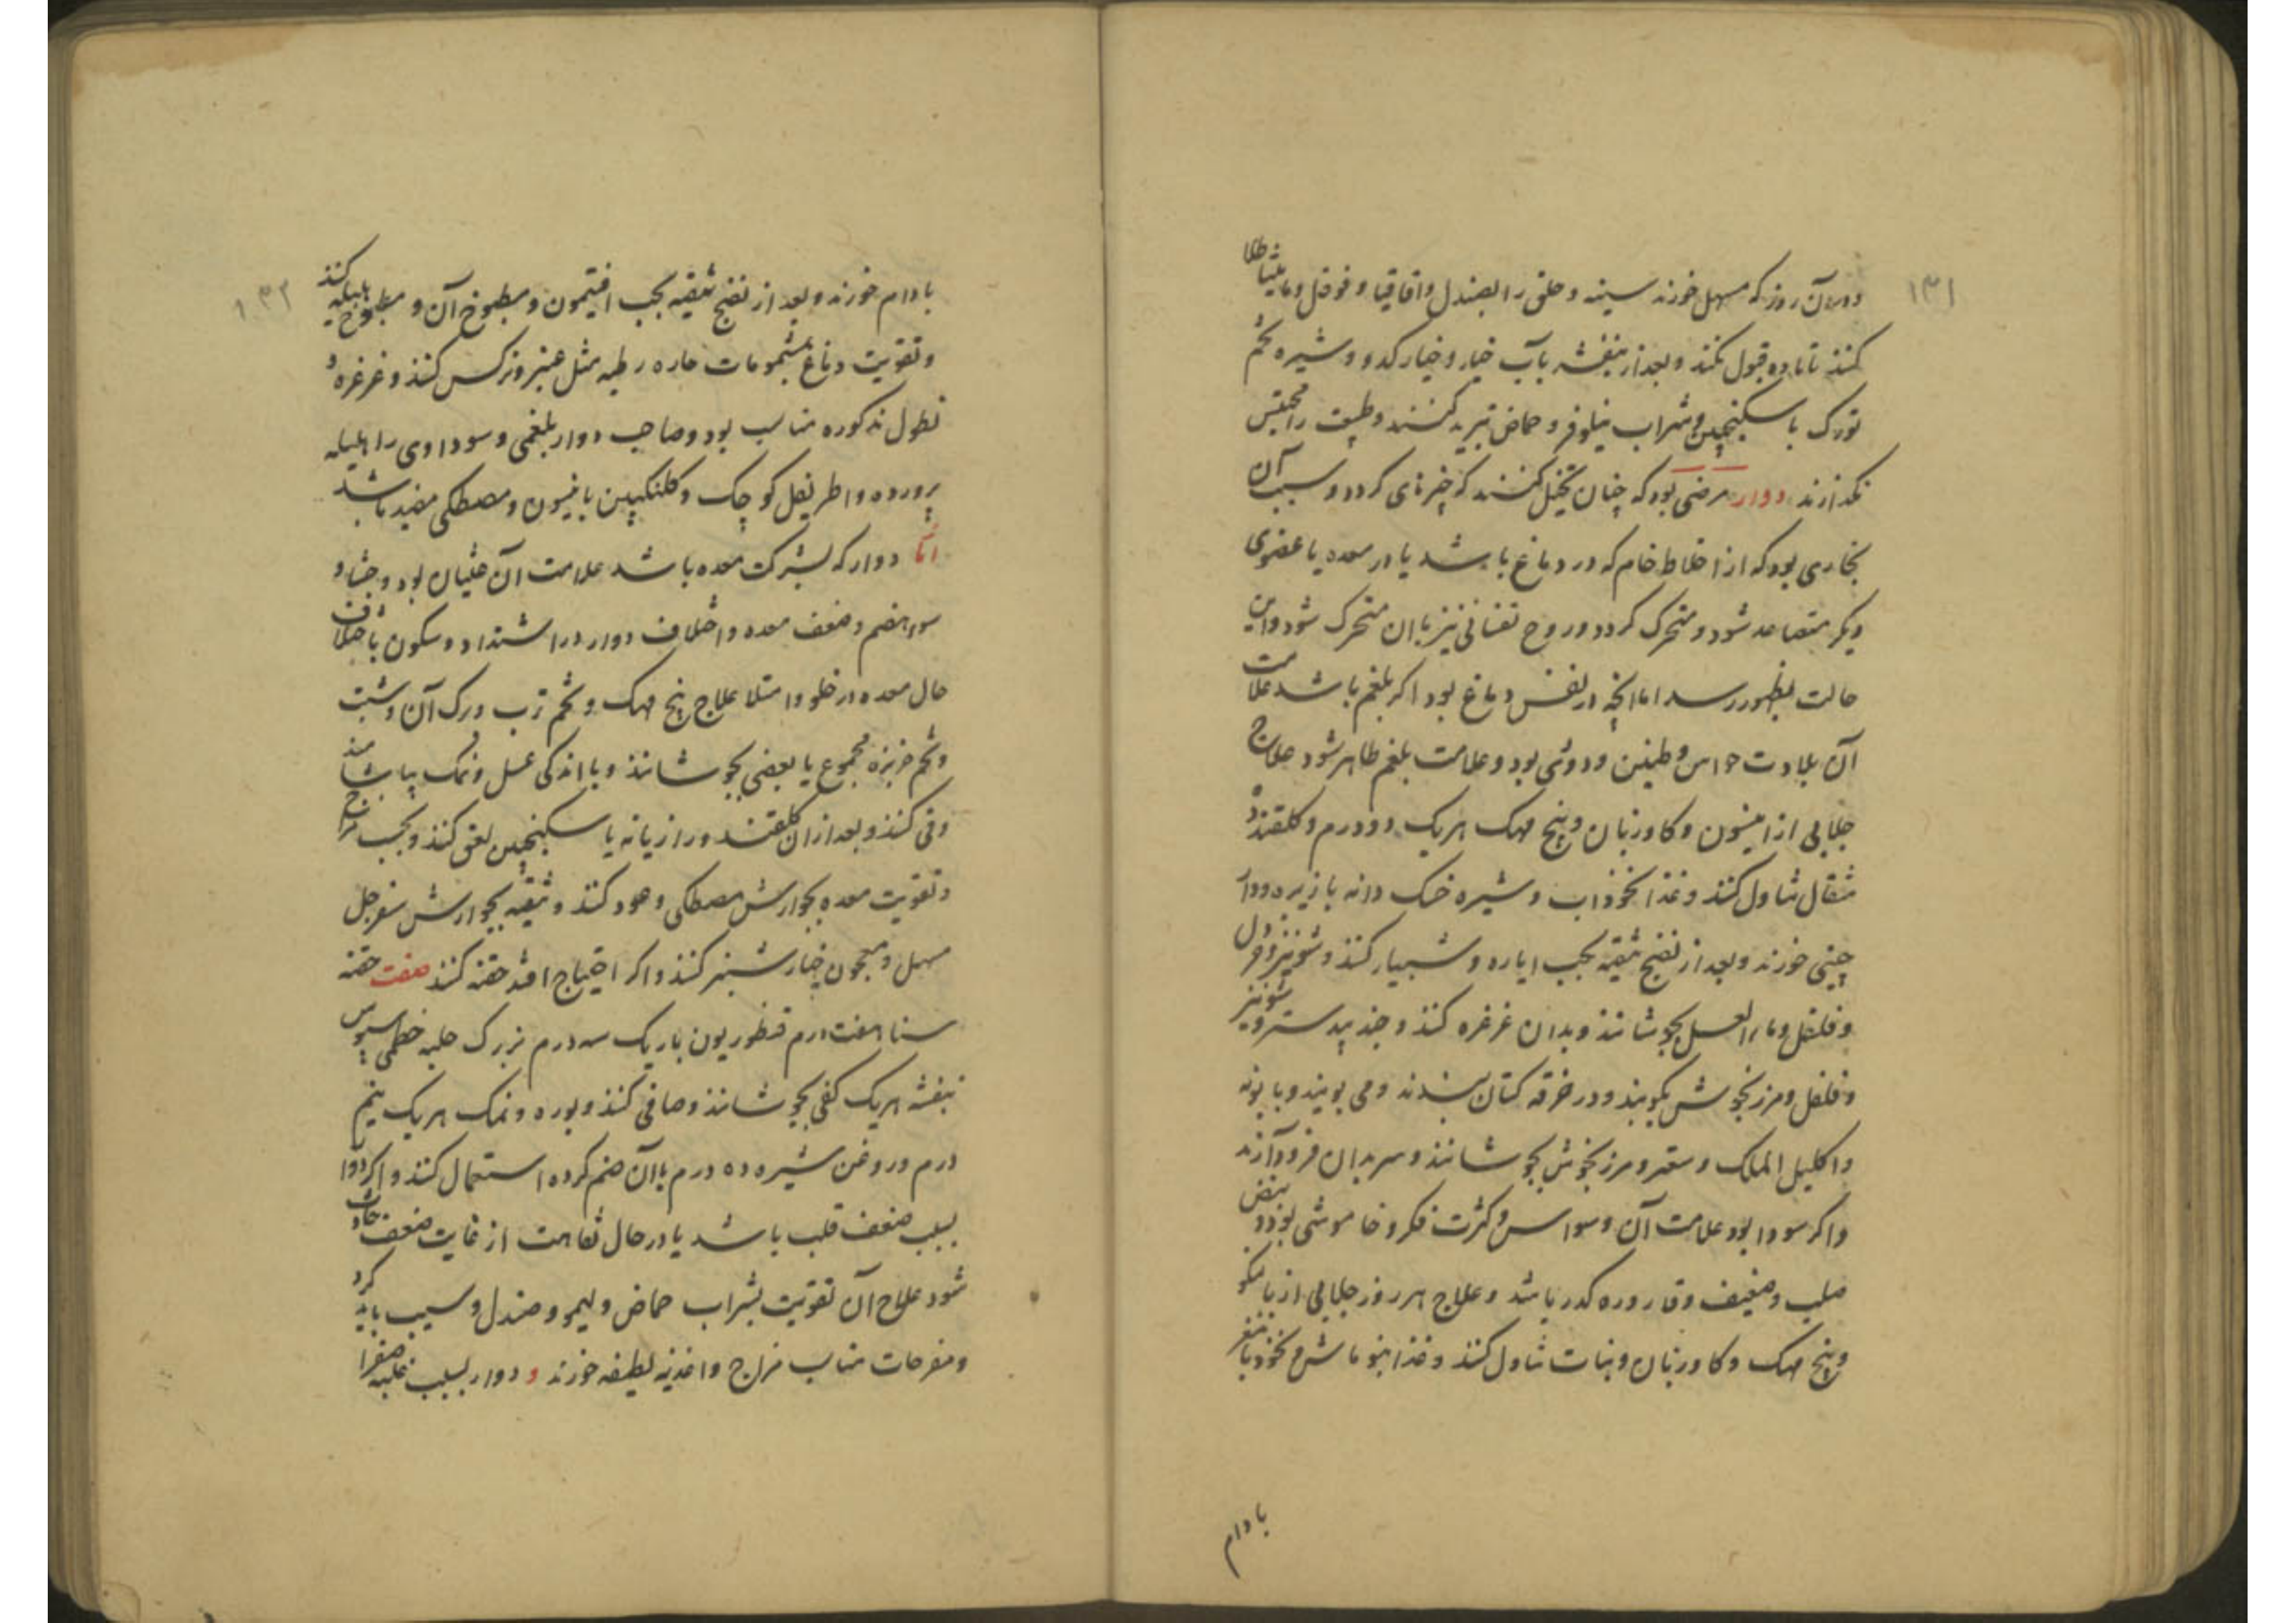 ۱۳۱
و در آن روز که مسهل خورند سینه و حلق را بصندل و اقاقیا و فوفل و مامیثا طلا
کنند تا ماده قبول نکند و بعد از بنفشه بآب خیار و خیار کدو و شیره تخم
تورک با سکنجبین و شراب نیلوفر و حماض تبرید کنند و طبیعت را محتبس
نگذارند دوار مرضی بود که چنان تخیل کنند که چیزهای کردد و سبب آن
بخاری بود که از اخلاط خام که در دماغ باشد یا در معده یا عضوی
دیکر متصاعد شود و متحرک کردد و روح نفسانی نیز بآن متحرک شود و این
حالت بظهور رسد اما انچه در نفس دماغ بود اکر بلغم باشد علامت
آن بلادت حواس و طنین و دوی بود و علامت بلغم ظاهر شود علاج
جلابی از انیسون و کاوزبان و بیخ مهک هر یک دو درم و کلقند ده
مثقال تناول کنند و غذا نخوداب و شیره خسک دانه با زیره و دار
چینی خورند و بعد از نضج تنقیه بحب ایاره و شبیار کنند و شونیز و خردل
و فلفل و ماء العسل بجوشانند و بدان غرغره کنند و جند بیدستر و شونیز
و فلفل و مرزنجوش بکوبند و در خرقه کتان بندند و می بویند و بابونه
و اکلیل الملک و سعتر و مرزنجوش بجوشانند و سر بدان فرود آرند
و اکر سودا بود علامت آن وسواس و کثرت فکر و خاموشی بود و نبض
صلب و ضعیف و قاروره کدر باشد و علاج هر روز جلابی از بالنکو
و بیخ مهک و کاوزبان و نبات تناول کنند و غذا بنو ماش و نخود با مغز
بادام
۱۳۲
بادام خورند و بعد از نضج تنقیه بحب افتیمون و مطبوخ آن و مطبوخ هلیله کنند
و تقویت دماغ بمشمومات حاره رطبه مثل عنبر و نرکس کنند و غرغره و
نطول مذکوره مناسب بود و صاحب دوار بلغمی و سوداوی را هلیله
پرورده و اطریفل کوچک و کلنکبین بانیسون و مصطکی مفید باشد
اما دوار که بشرکت معده باشد علامت آن غثیان بود و جشاء و
سوء هضم و ضعف معده و اختلاف دوار در اشتداد و سکون باختلاف
حال معده در خلو و امتلا علاج بیخ مهک و تخم ترب و برک آن و شبت
و تخم خربزه مجموع یا بعضی بجوشانند و با اندکی عسل و نمک بیاشامند
و قی کنند و بعد از ان کلقند و رازیانه یا سکنجبین لعق کنند و بحسب مزاج
و تقویت معده بجوارش مصطکی و عود کنند و تنقیه بجوارش سفرجل
مسهل و معجون خیارشنبر کنند و اکر احتیاج افتد حقنه کنند صفت حقنه
سنا هفت درم قنطوریون باریک سه درم بزرک حلبه خطمی سبوس
بنفشه هر یک کفی بجوشانند و صافی کنند و بوره و نمک هر یک نیم
درم و روغن شیره ده درم باآن ضم کرده استعمال کنند و اکر دوار
بسبب ضعف قلب باشد یا در حال نقاهت از غایت ضعف حادث
شود علاج آن تقویت بشراب حماض و لیمو و صندل و سیب باید کرد
و مفرحات مناسب مزاج و اغذیه لطیفه خورند و دوار بسبب غلبه صفرا